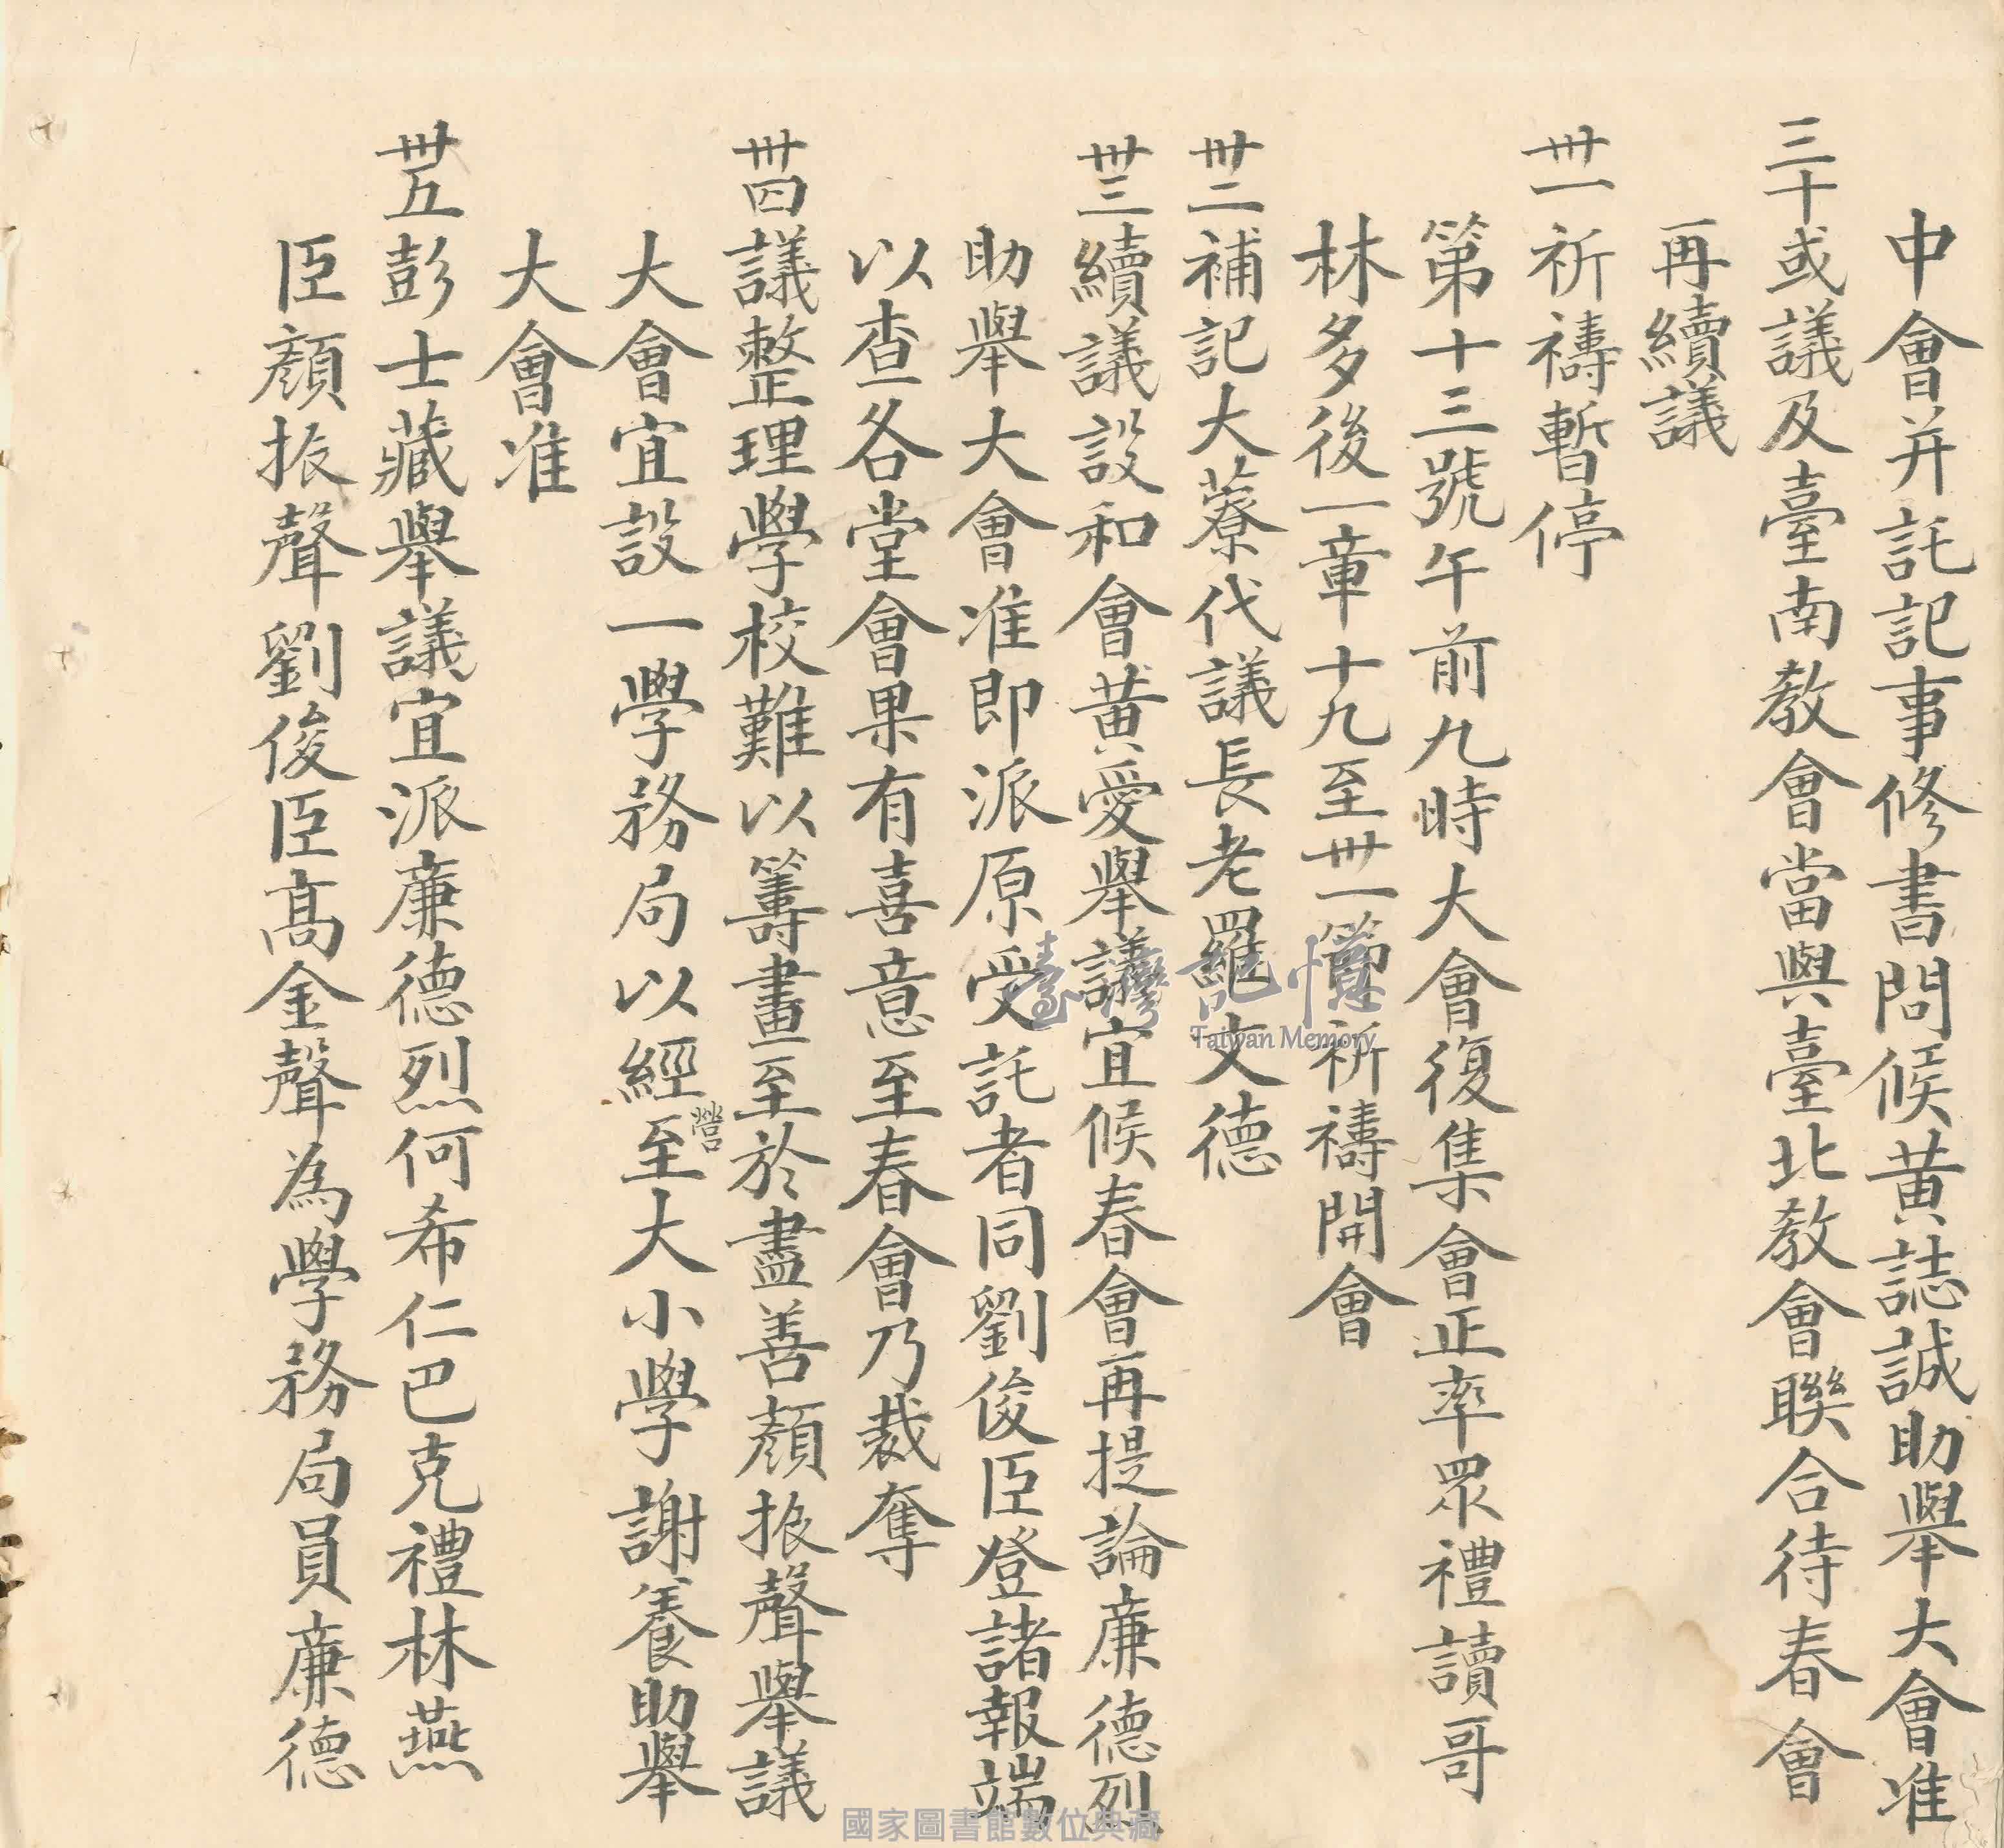 中會并託記事修書問候黃誌誠助舉大會准
三十或議及臺南教會當與臺北教會聯合待春會
再續議
卅一祈禱暫停
第十三號午前九時大會復集會正率眾禮讀哥
林多後一章十九至卅一節祈禱開會
卅二補記大藔代議長老羅文德
卅三續議設和會黃愛舉議宜候春會再提論廉德烈
助舉大會准即派原受託者同劉俊臣登諸報端
以查各堂會果有喜意至春會乃裁奪
卅四議整理學校難以籌畫至於盡善顏振聲舉議
大會宜設一學務局以經營至大小學謝養助舉
大會准
卅五彭士藏舉議宜派廉德烈何希仁巴克禮林燕
臣顏振聲劉俊臣高金聲為學務局員廉德
臺灣記憶
Taiwan Memory
國家圖書館數位典藏